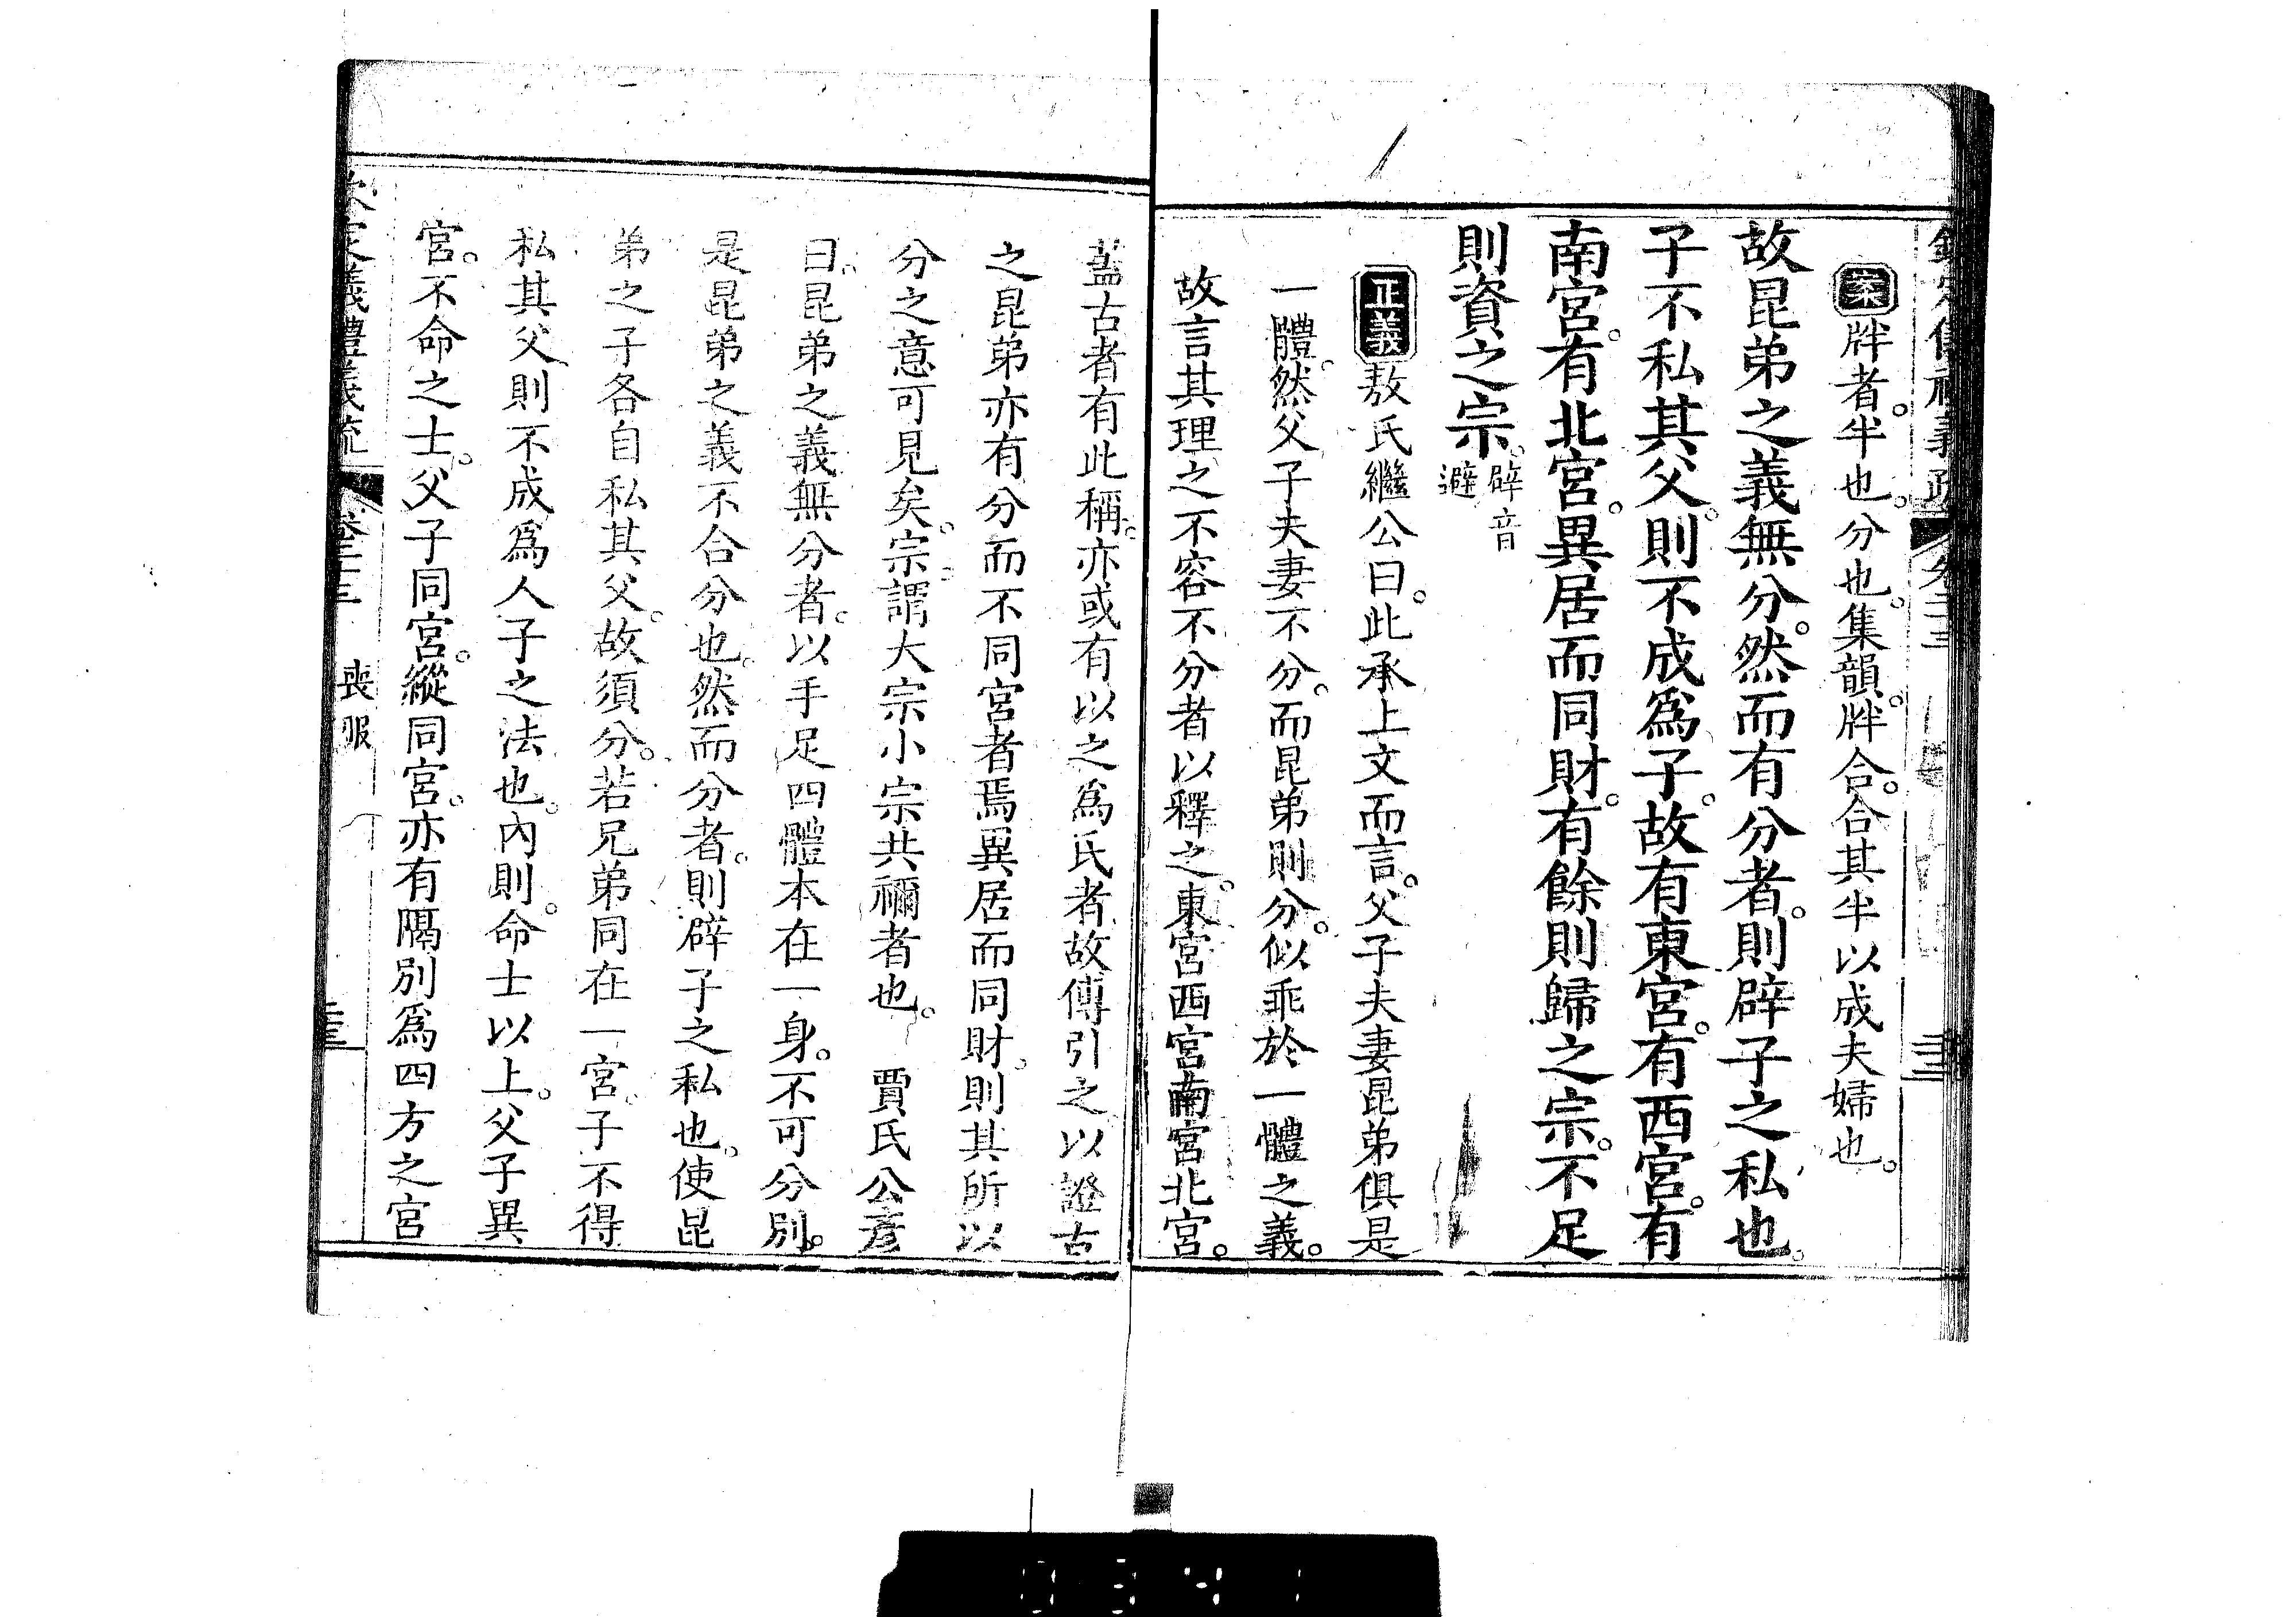 欽定儀禮義疏 卷二十三
案牉者。半也。分也。集韻。牉合。合其半以成夫婦也。
故昆弟之義無分。然而有分者。則辟子之私也。
子不私其父。則不成爲子。故有東宮。有西宮。有
南宮。有北宮。異居而同財。有餘則歸之宗。不足
則資之宗。辟音避
正義敖氏繼公曰。此承上文而言。父子夫妻昆弟俱是
一體。然父子夫妻不分。而昆弟則分。似乖於一體之義。
故言其理之不容不分者以釋之。東宮西宮南宮北宮。
蓋古者有此稱。亦或有以之爲氏者故傳引之以證古
之昆弟亦有分而不同宮者焉異居而同財。則其所以
分之意可見矣。宗謂大宗小宗共禰者也。 賈氏公彥
曰。昆弟之義無分者。以手足四體本在一身。不可分別。
是昆弟之義不合分也。然而分者。則辟子之私也。使昆
弟之子各自私其父。故須分。若兄弟同在一宮。子不得
私其父、則不成爲人子之法也。內則。命士以上。父子異
宮。不命之士。父子同宮。縱同宮。亦有隔別爲四方之宮
義禮義疏 卷二十三 喪服
0341